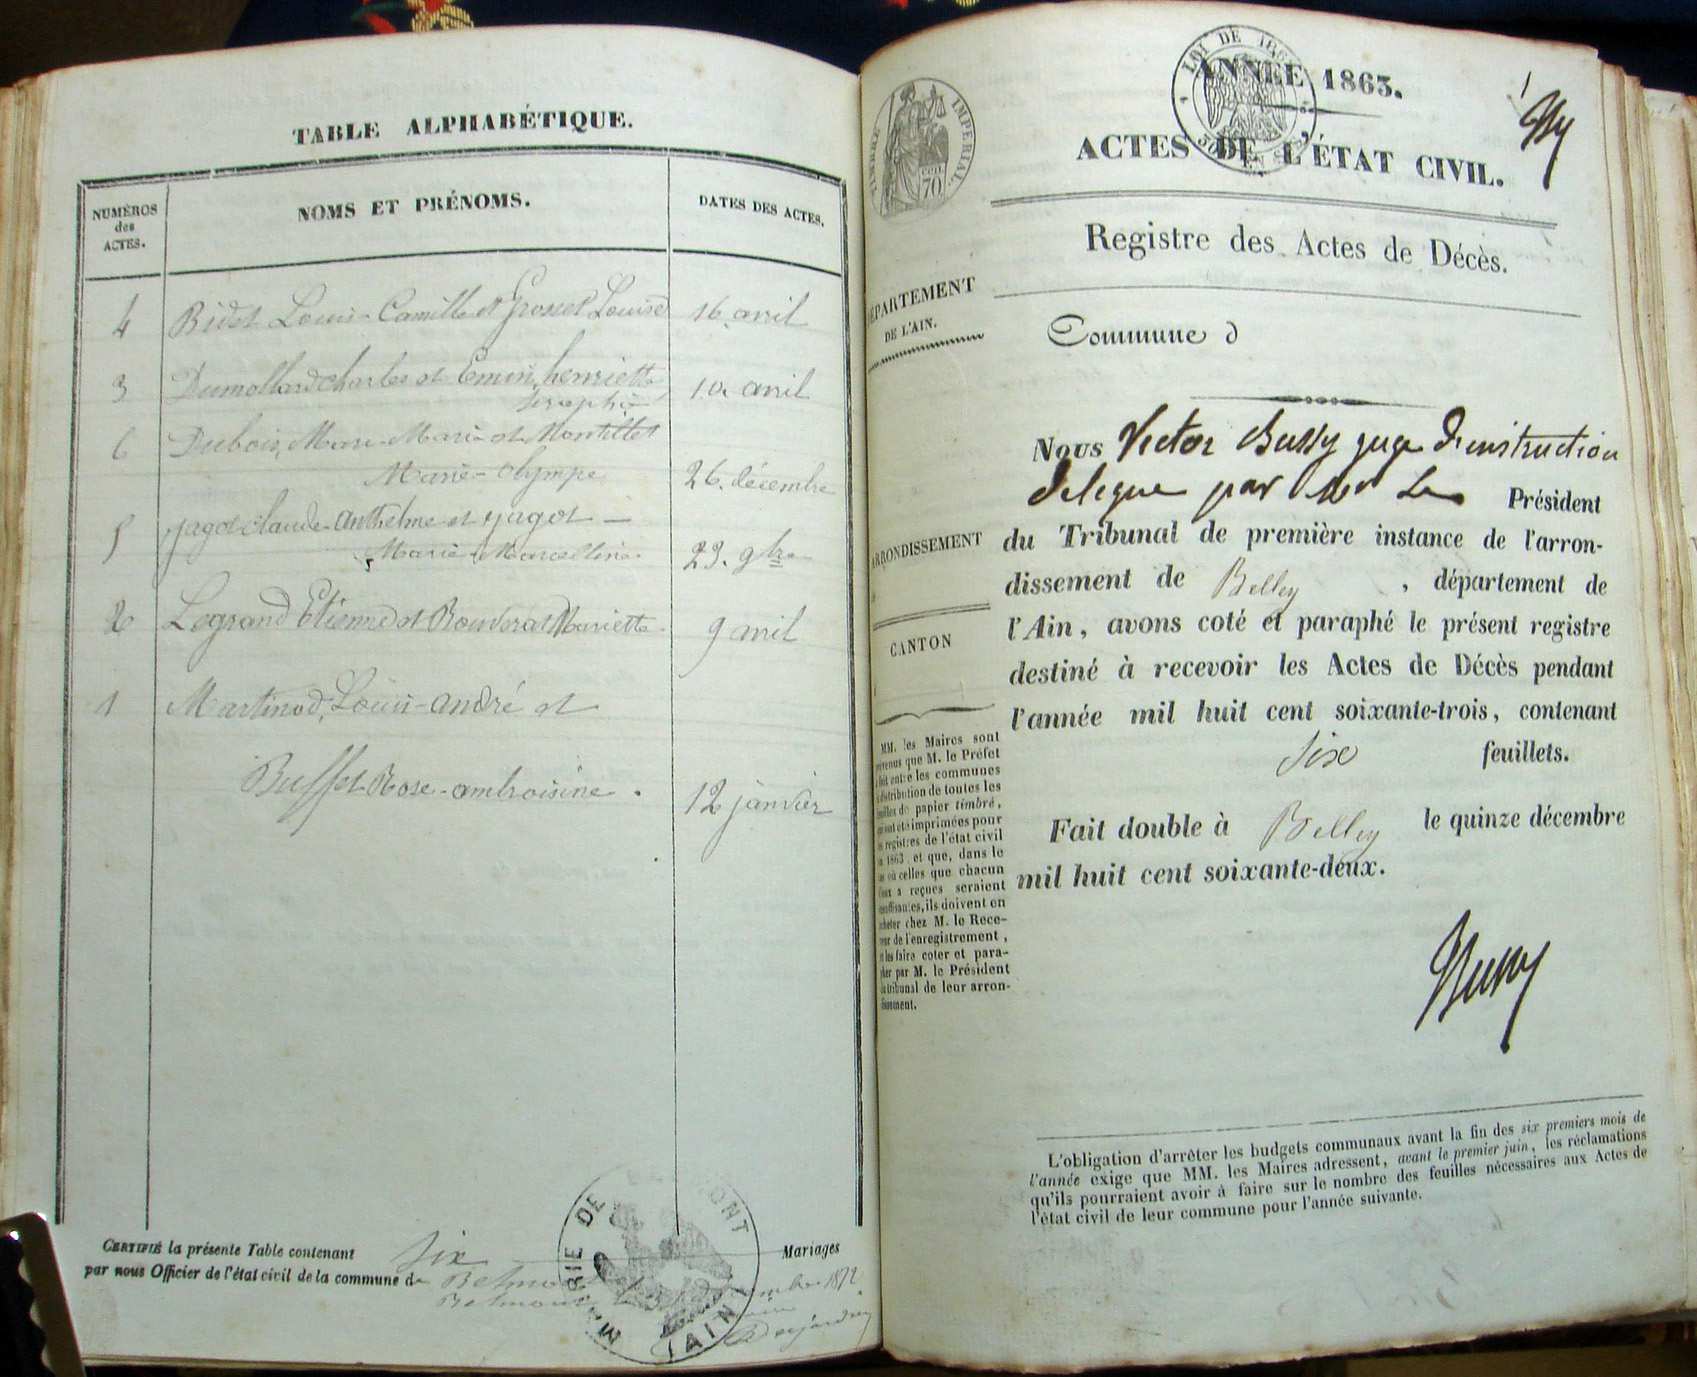 TABLE ALPHABÉTIQUE.
NUMÉROS
des
ACTES.
NOMS ET PRÉNOMS.
DATES DES ACTES.
4 Bidet Louis-Camille et Grosset Louise 16 avril
3 Dumollard charles et Emin henriette
Séraphie 10 avril
6 Dubois, Marc-Marie et Montillet
Marie-Olympe 26 décembre
5 Jagot claude-anthelme et Jagot
Marie-Marcelline 23. 9bre
2 Legrand Etienne et Bouverat Mariette 9 avril
1 Martinod, Louis-andré et
Buffet Rose-ambroisine. 12 janvier
CERTIFIÉ la présente Table contenant six Mariages
par nous Officier de l'état civil de la commune de Belmont
Belmont
MAIRIE DE MONT
(AIN)
LOI DE
TIMBRE IMPERIAL.
CEN.
70
ANNÉE 1863.
ACTES DE L'ÉTAT CIVIL.
Registre des Actes de Décès.
DÉPARTEMENT
DE L'AIN.
Commune d
Nous Victor Bussy juge d'instruction
délégué par Mr Le Président
du Tribunal de première instance de l'arron-
dissement de Belley, département de
l'Ain, avons coté et paraphé le présent registre
destiné à recevoir les Actes de Décès pendant
l'année mil huit cent soixante-trois, contenant
Six feuillets.
Fait double à Belley le quinze décembre
mil huit cent soixante-deux.
Bussy
ARRONDISSEMENT
CANTON
MM. les Maires sont
que M. le Préfet
fait entre les communes
distribution de toutes les
de papier timbré,
été imprimées pour
registres de l'état civil
1863, et que, dans le
où celles que chacun
a reçues seraient
insuffisantes, ils doivent en
acheter chez M. le Rece-
veur de l'enregistrement,
les faire coter et para-
pher par M. le Président
tribunal de leur arron-
dissement.
L'obligation d'arrêter les budgets communaux avant la fin des six premiers mois de
l'année exige que MM. les Maires adressent, avant le premier juin, les réclamations
qu'ils pourraient avoir à faire sur le nombre des feuilles nécessaires aux Actes de
l'état civil de leur commune pour l'année suivante.